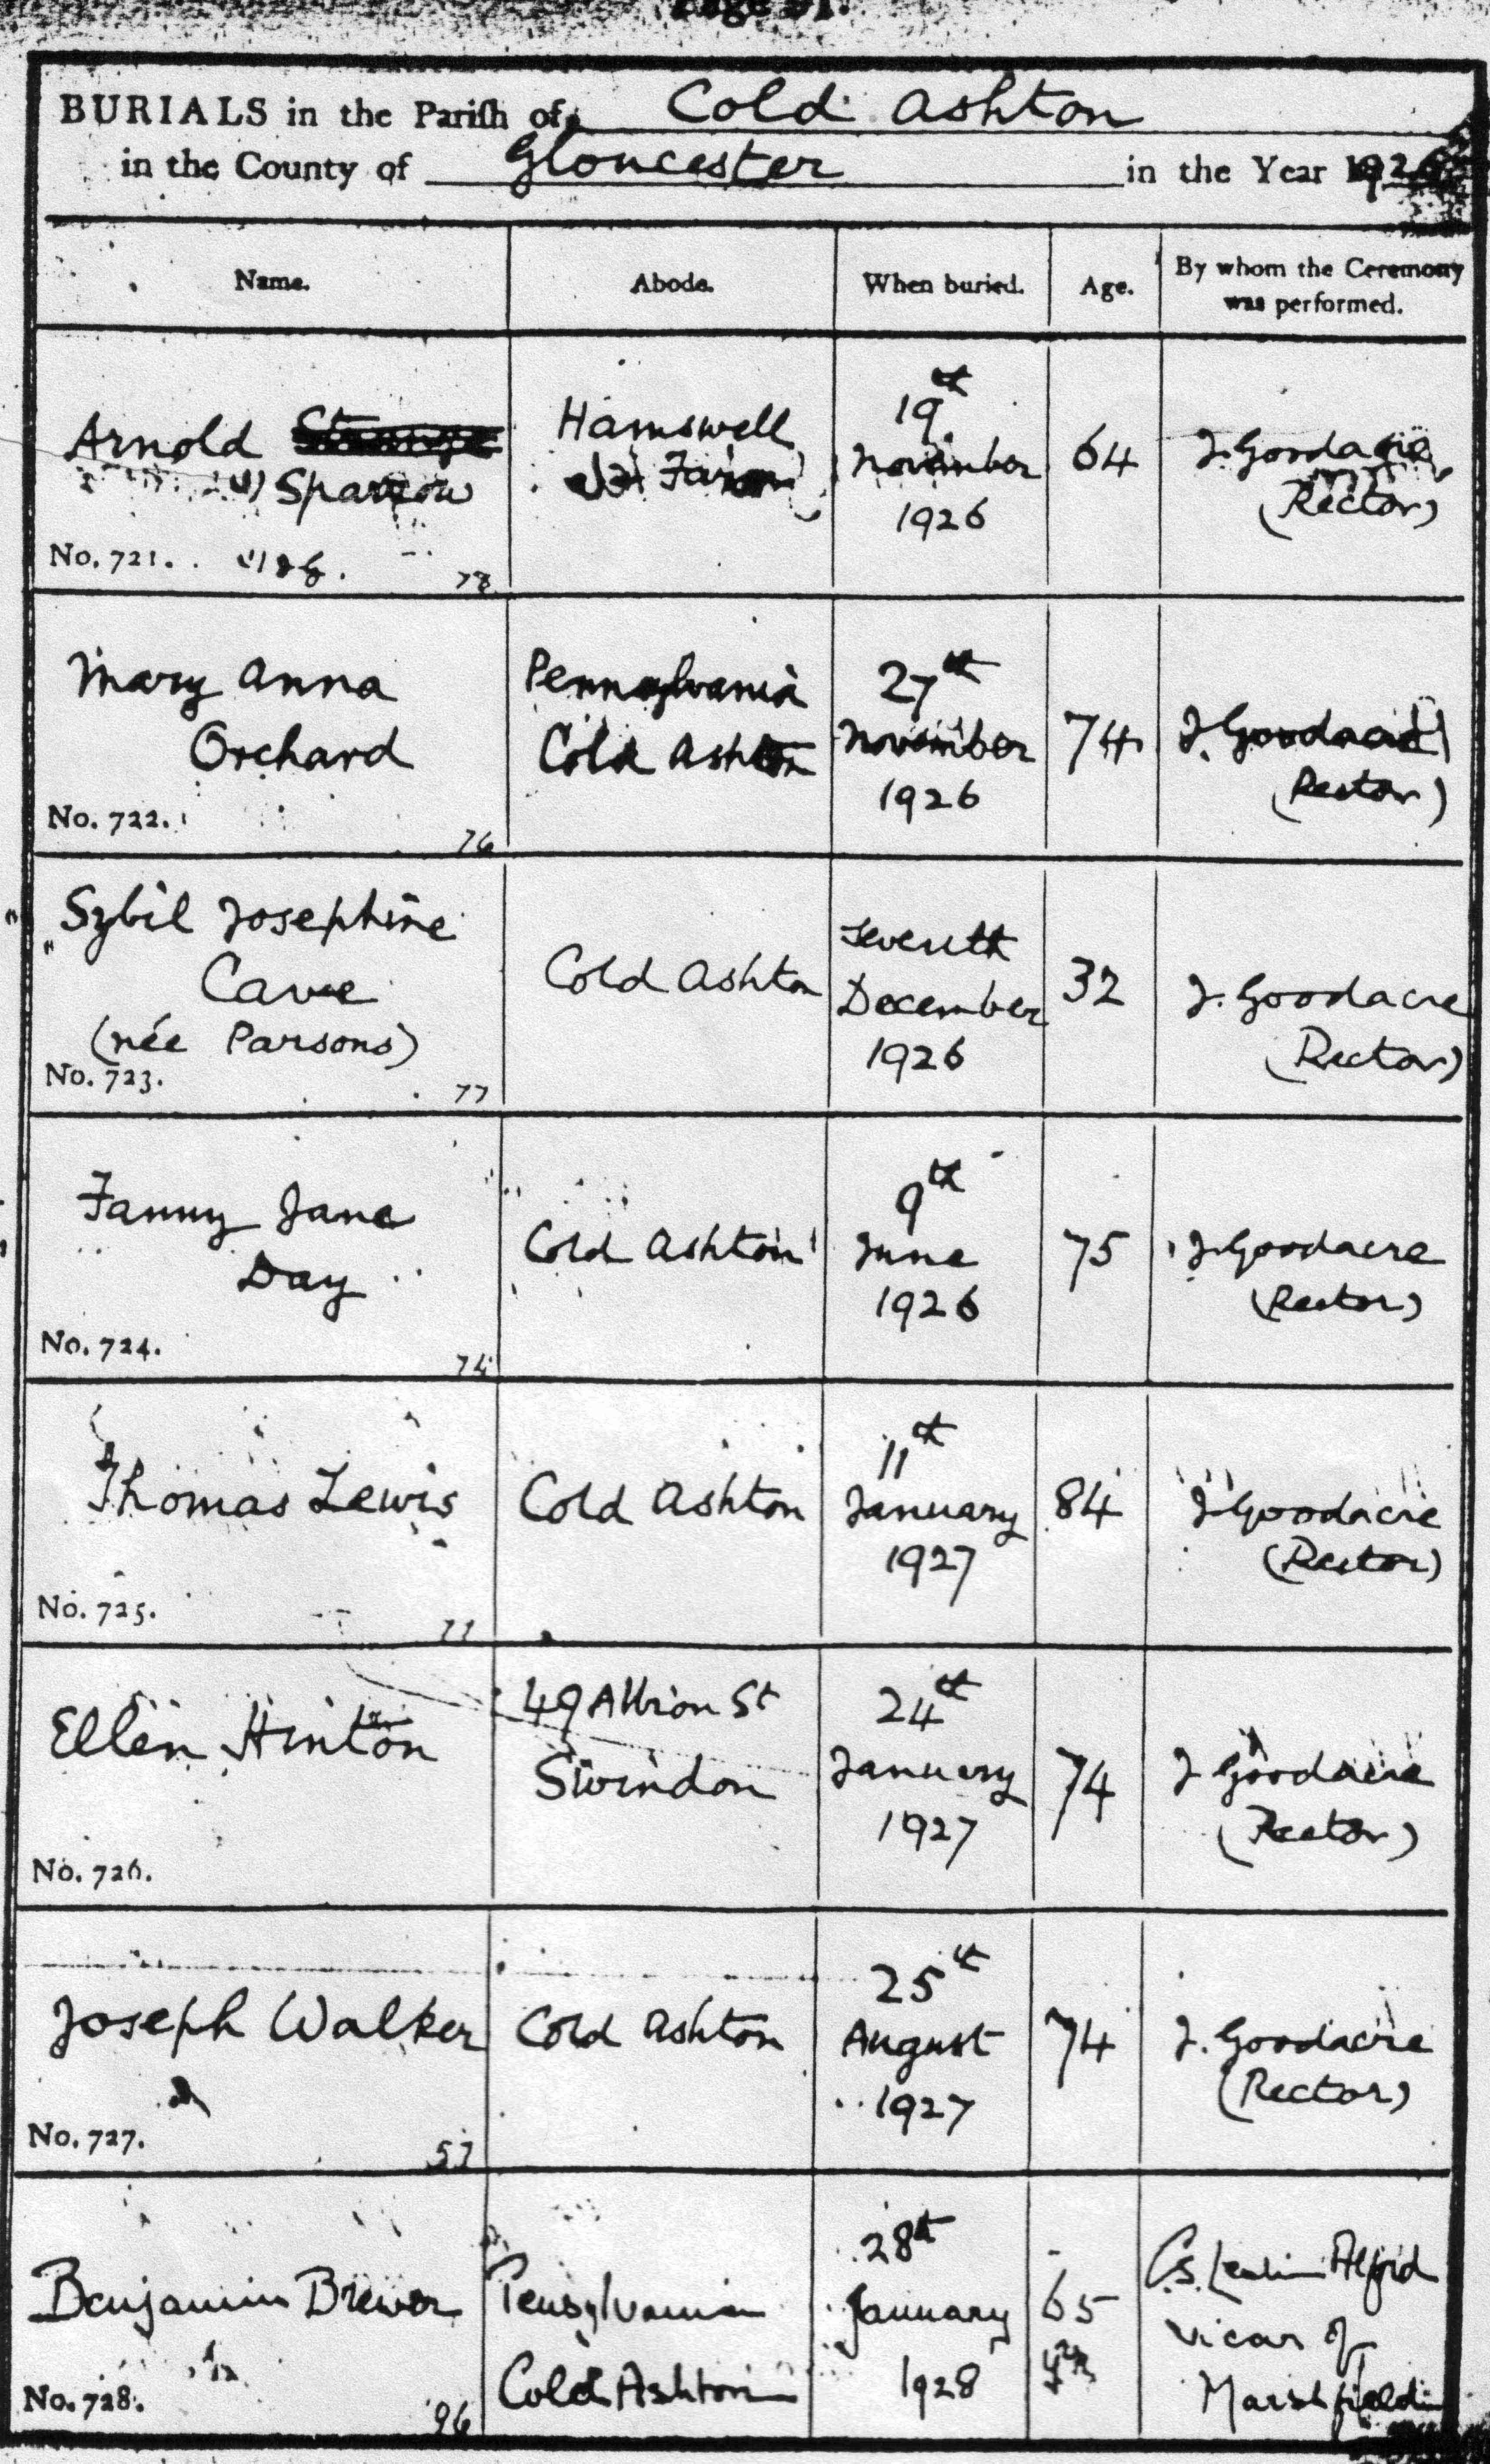 Page 91.
BURIALS in the Parish of Cold Ashton
in the County of Gloucester in the Year 1926
Name. Abode. When buried. Age. By whom the Ceremony
was performed.
Arnold
Sparrow
No. 721.
Hamswell
Farm
19th
November
1926
64
J. Goodacre
(Rector)
Mary Anna
Orchard
No. 722.
76
Pennsylvania
Cold Ashton
27th
November
1926
74
J. Goodacre
(Rector)
Sybil Josephine
Cave
(née Parsons)
No. 723.
77
Cold Ashton
Seventh
December
1926
32
J. Goodacre
(Rector)
Fanny Jane
Day
No. 724.
74
Cold Ashton
9th
June
1926
75
J. Goodacre
(Rector)
Thomas Lewis
No. 725.
Cold Ashton
11th
January
1927
84
J. Goodacre
(Rector)
Ellen Hinton
No. 726.
49 Albion St
Swindon
24th
January
1927
74
J Goodacre
(Rector)
Joseph Walker
No. 727.
57
Cold Ashton
25th
August
1927
74
J. Goodacre
(Rector)
Benjamin Brewer
No. 728.
96
Pensylvania
Cold Ashton
28th
January
1928
65
yrs
Alford
Vicar of
Marshfield